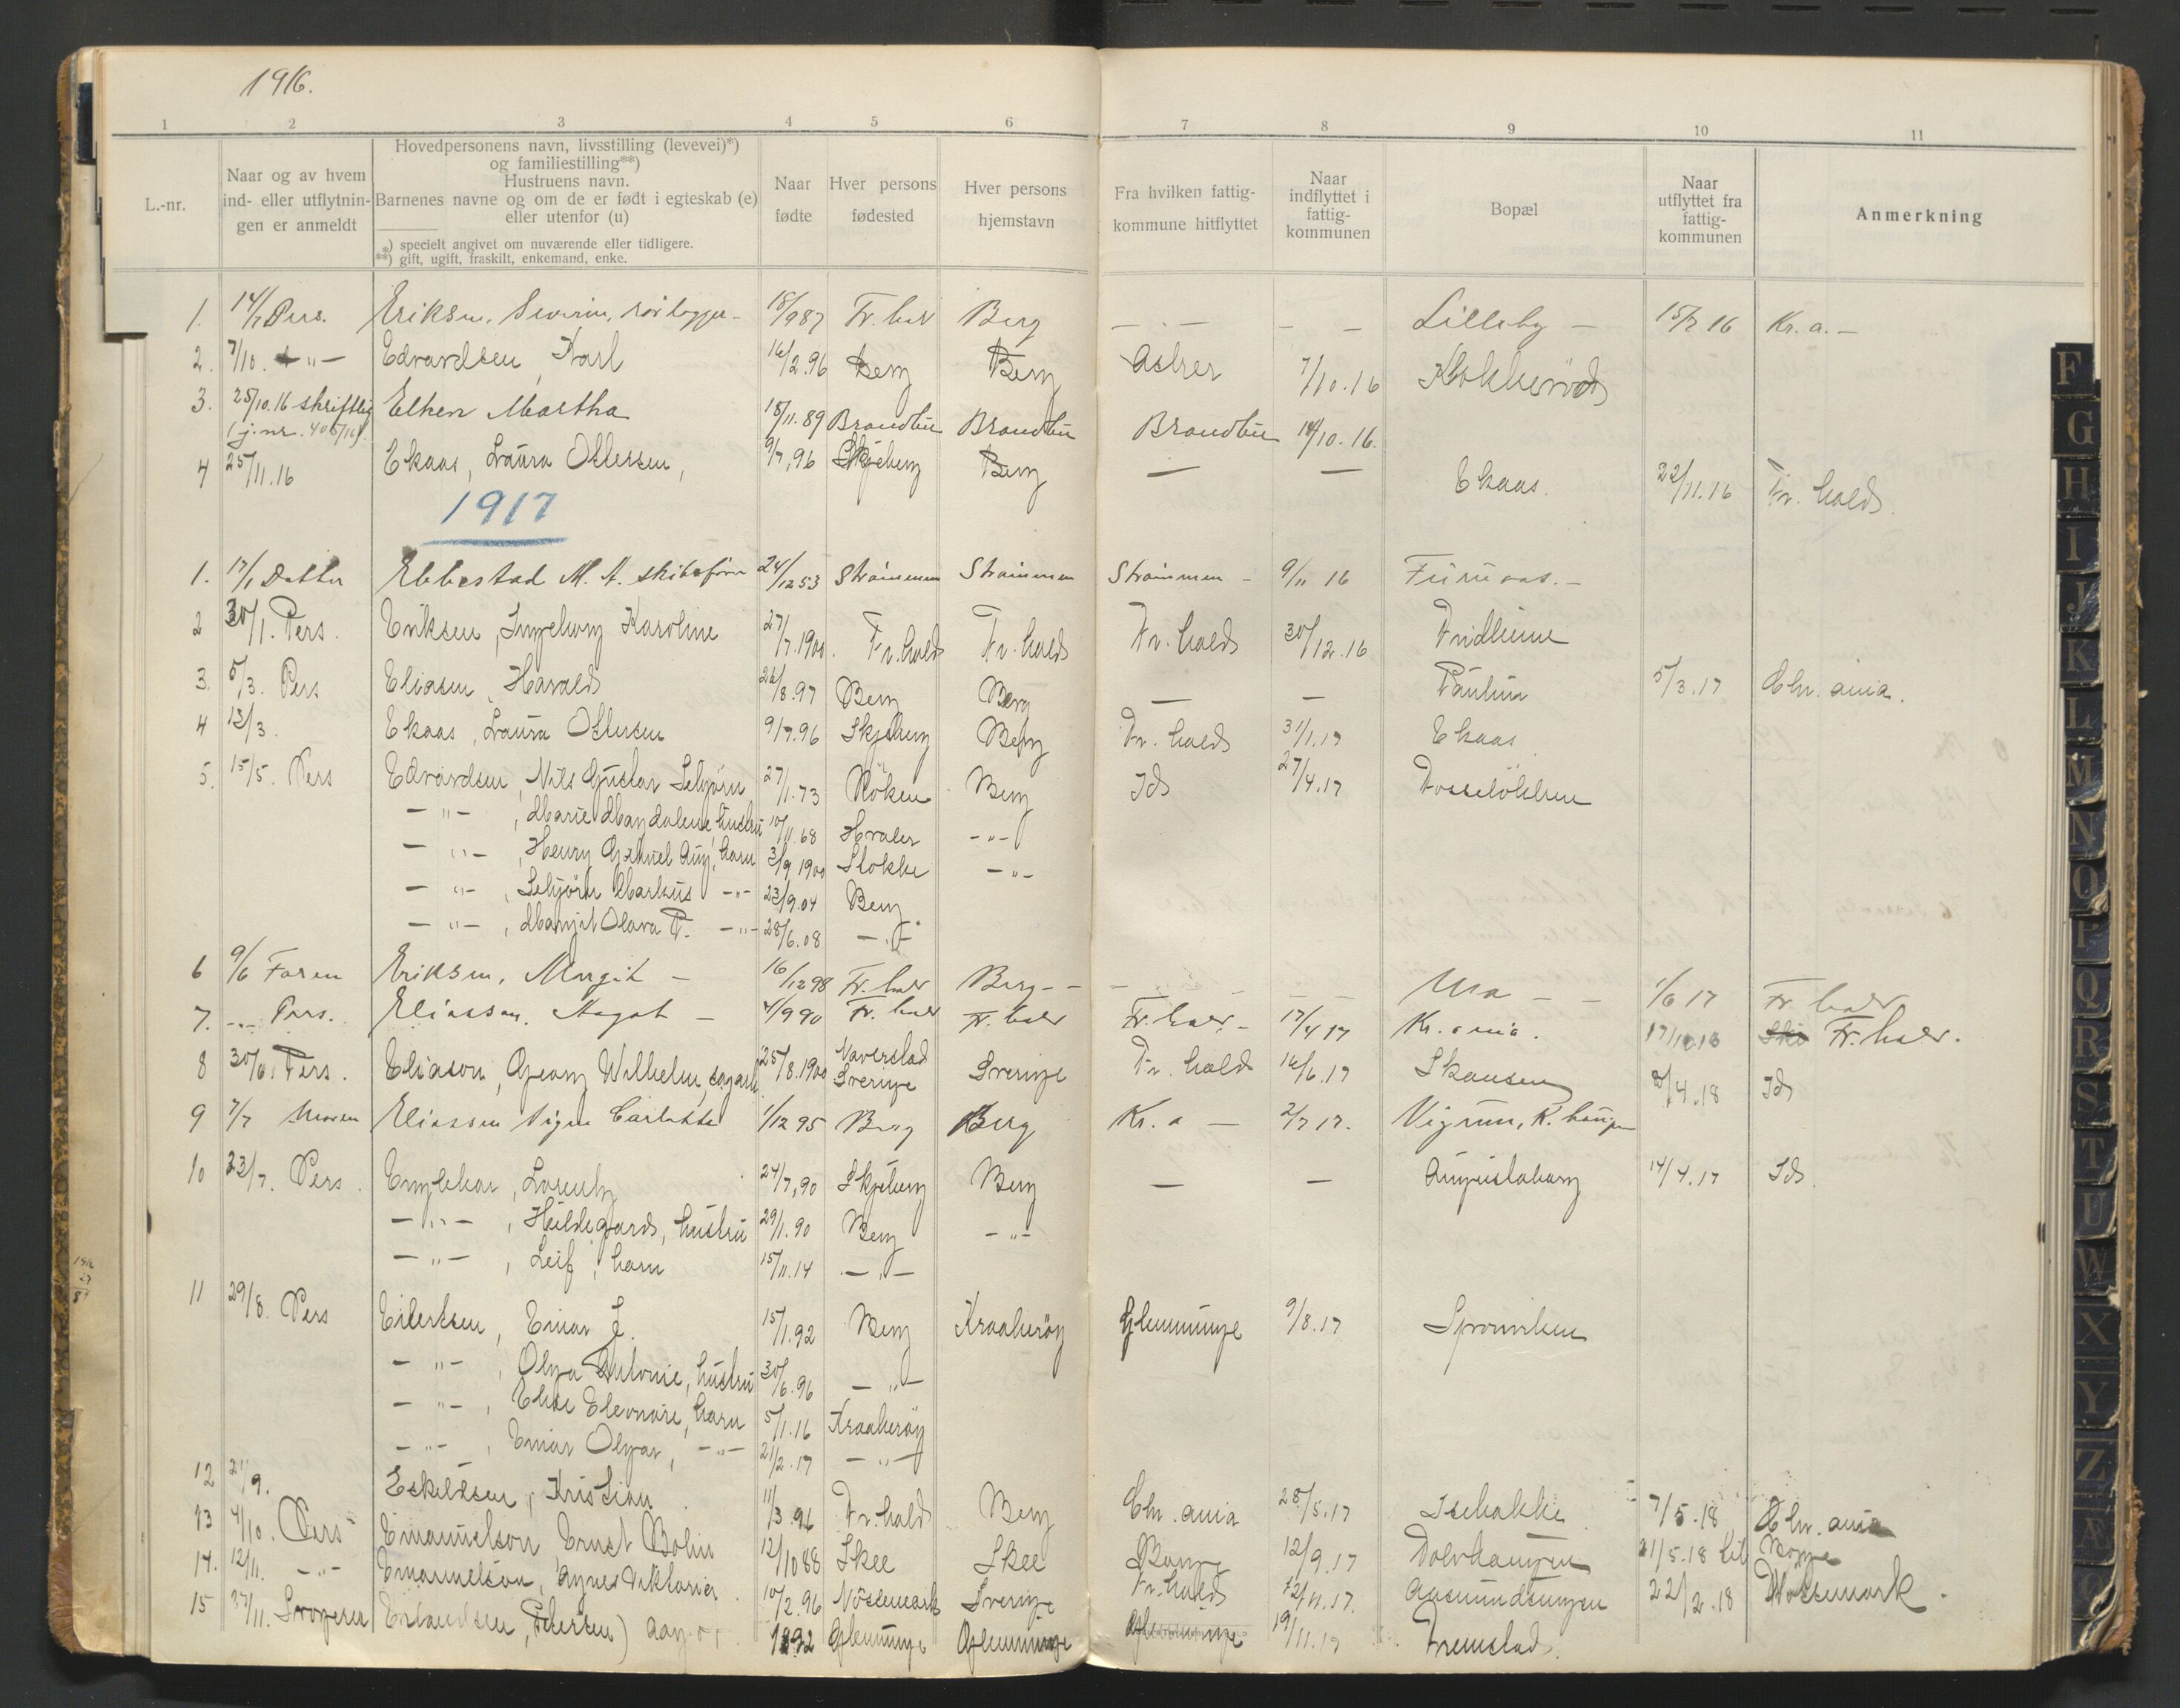 1916.
1 2 3 4 5 6 7 8 9 10 11
L.-nr.
Naar og av hvem
ind- eller utflytnin-
gen er anmeldt
Hovedpersonens navn, livsstilling (levevei)*)
og familiestilling**)
Hustruens navn.
Barnenes navne og om de er født i egteskab (e)
eller utenfor (u)
*) specielt angivet om nuværende eller tidligere.
**) gift, ugift, fraskilt, enkemand, enke.
Naar
fødte
Hver persons
fødested
Hver persons
hjemstavn
Fra hvilken fattig-
kommune hitflyttet
Naar
indflyttet i
fattig-
kommunen
Bopæl
Naar
utflyttet fra
fattig-
kommunen
Anmerkning
1. 14/7 Pers. Eriksen, Severin, 18/9 87 Fr.hald Berg - - - - Lilleby - 15/7 16 Kr. a. -
2. 7/10. - " - Edvardsen, Karl 16/2.96 Berg Berg Asker 7/10.16
3. 25/10.16 skriftlig Elken Martha 18/11.89 Brandbu Brandbu Brandbu 14/10.16.
(j.nr. 405/16).
4 25/11.16 Ekaas, Laura Ottersen, 9/7.96 Skjeberg Berg - - Ekaas. 22/11.16 Fr. hald.
1917
1. 17/1 Datter Ebbestad M. A. skibsfører 24/12 53 Strømmen Strømmen Strømmen - 9/11 16 Furuaas. -
2 30/1. Pers. Eriksen, Ingeborg Karoline 27/7.1900. Fr. hald Fr. hald Fr. hald 30/12.16 Fridheim
3. 5/3. Pers Eliasen, Harald 26/8.97 Berg Berg - - Paulin 5/3.17 Chr. ania.
4 13/3. Ekaas, Laura Ottersen 9/7.96 Skjeberg Berg Fr. hald 31/1.17 Ekaas
5. 15/5. Pers Edvardsen, Nils Gustav Lebjørn 27/1.73 Røken Berg Id 27/4.17 Fosseløkken
- " - , Marie Magdalene, hustru 10/11.68 Hvaler - " -
- " - , Henry Gabriel Aug, barn 3/9 1900 Slokke - " -
- " - , Lebjørn Markus - " - 23/9.04 Berg
- " - , Margit Olava P. - " - 28/6.08 - " -
6 9/6 Faren Eriksen, Margit - 16/12 98 Fr. hald Berg - - - - - - Ura - - 1/6 17 Fr. hald
7. - " - Pers. Eliassen, Aagot - 4/9 90 Fr. hald Fr. hald Fr. hald - 17/4 17 Kr. ania. 17/10 18 Fr. hald.
8 30/6. Pers. Eliason, Georg Wilhelm, 25/8.1900 Naverstad Sverige Sverige Fr. hald 16/6.17 Skansen 8/4.18 Id
9 7/7 Moren Eliassen Signe Carlotte 1/12 95 Berg Berg Kr. a - 2/7 17. Vigrim, K. haugen
10 23/7. Pers. Engebær, Lorentz 24/7.90 Skjeberg Berg - - Augustaborg 14/4.17 Id.
- " - , Hildegard, hustru 29/1.90 Berg - " -
- " - , Leif, barn 15/11.14 - " -
11 29/8. Pers Eilertsen, Einar J. 15/1.92 Berg Kraakerøy Glemminge 9/8.17
- " - , Olga Antonie, hustru 30/6.96 - " -
- " - , Else Eleonore, barn 5/1.16 Kraakerøy
- " - , Einar Olgar, - " - 21/2.17 - " -
12 21/9. Eskildsen, Kristian 11/3.96 Fr. hald Berg Chr. ania 28/5.17 Isebakke 7/5.18 Chr. ania
13 4/10. Pers Emanuelson Ernst Bolin 12/10 88 Skee Skee Borge 12/9.17 Dalskaugen 21/5.18 til Borge
14. 12/11. - " - Emanuelson, Agnes Viktoria 10/2.96 Nøssemark Sverige Fr. hald 12/11.17. Aasmundsungen 22/2.18 Nøssemark.
15 27/11. Erlandsen, (Petersen) Aagot 1892 Glemminge Glemminge Glemminge 19/11.17 Tremstad.
F
G
H
I
J
K
L
M
N
O
P
Q
R
S
T
U
W
X
Y
Z
Æ
Ø